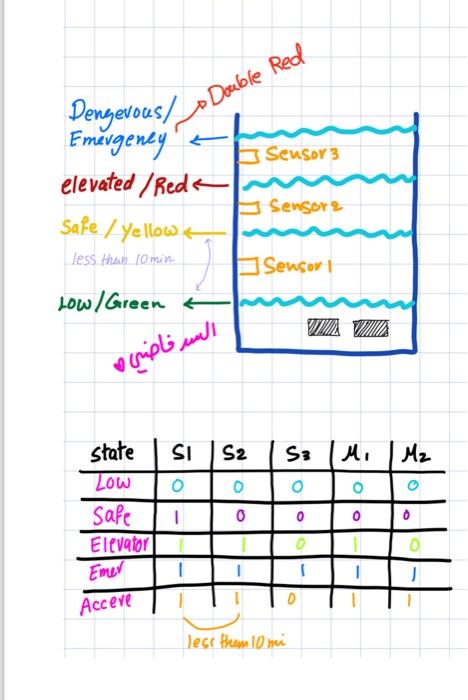 Double Red
Dengerous/
Emergency
Sensor3
elevated/Red
Sensor2
Safe/yellow
less than 10min
Sensor1
Low/Green
السد فاضي
State S1 S2 S3 M1 M2
Low 0 0 0 0 0
Safe 1 0 0 0 0
Elevator 1 1 0 1 0
Emer 1 1 1 1 1
Accere 1 1 0 1 1
less them 10 mi